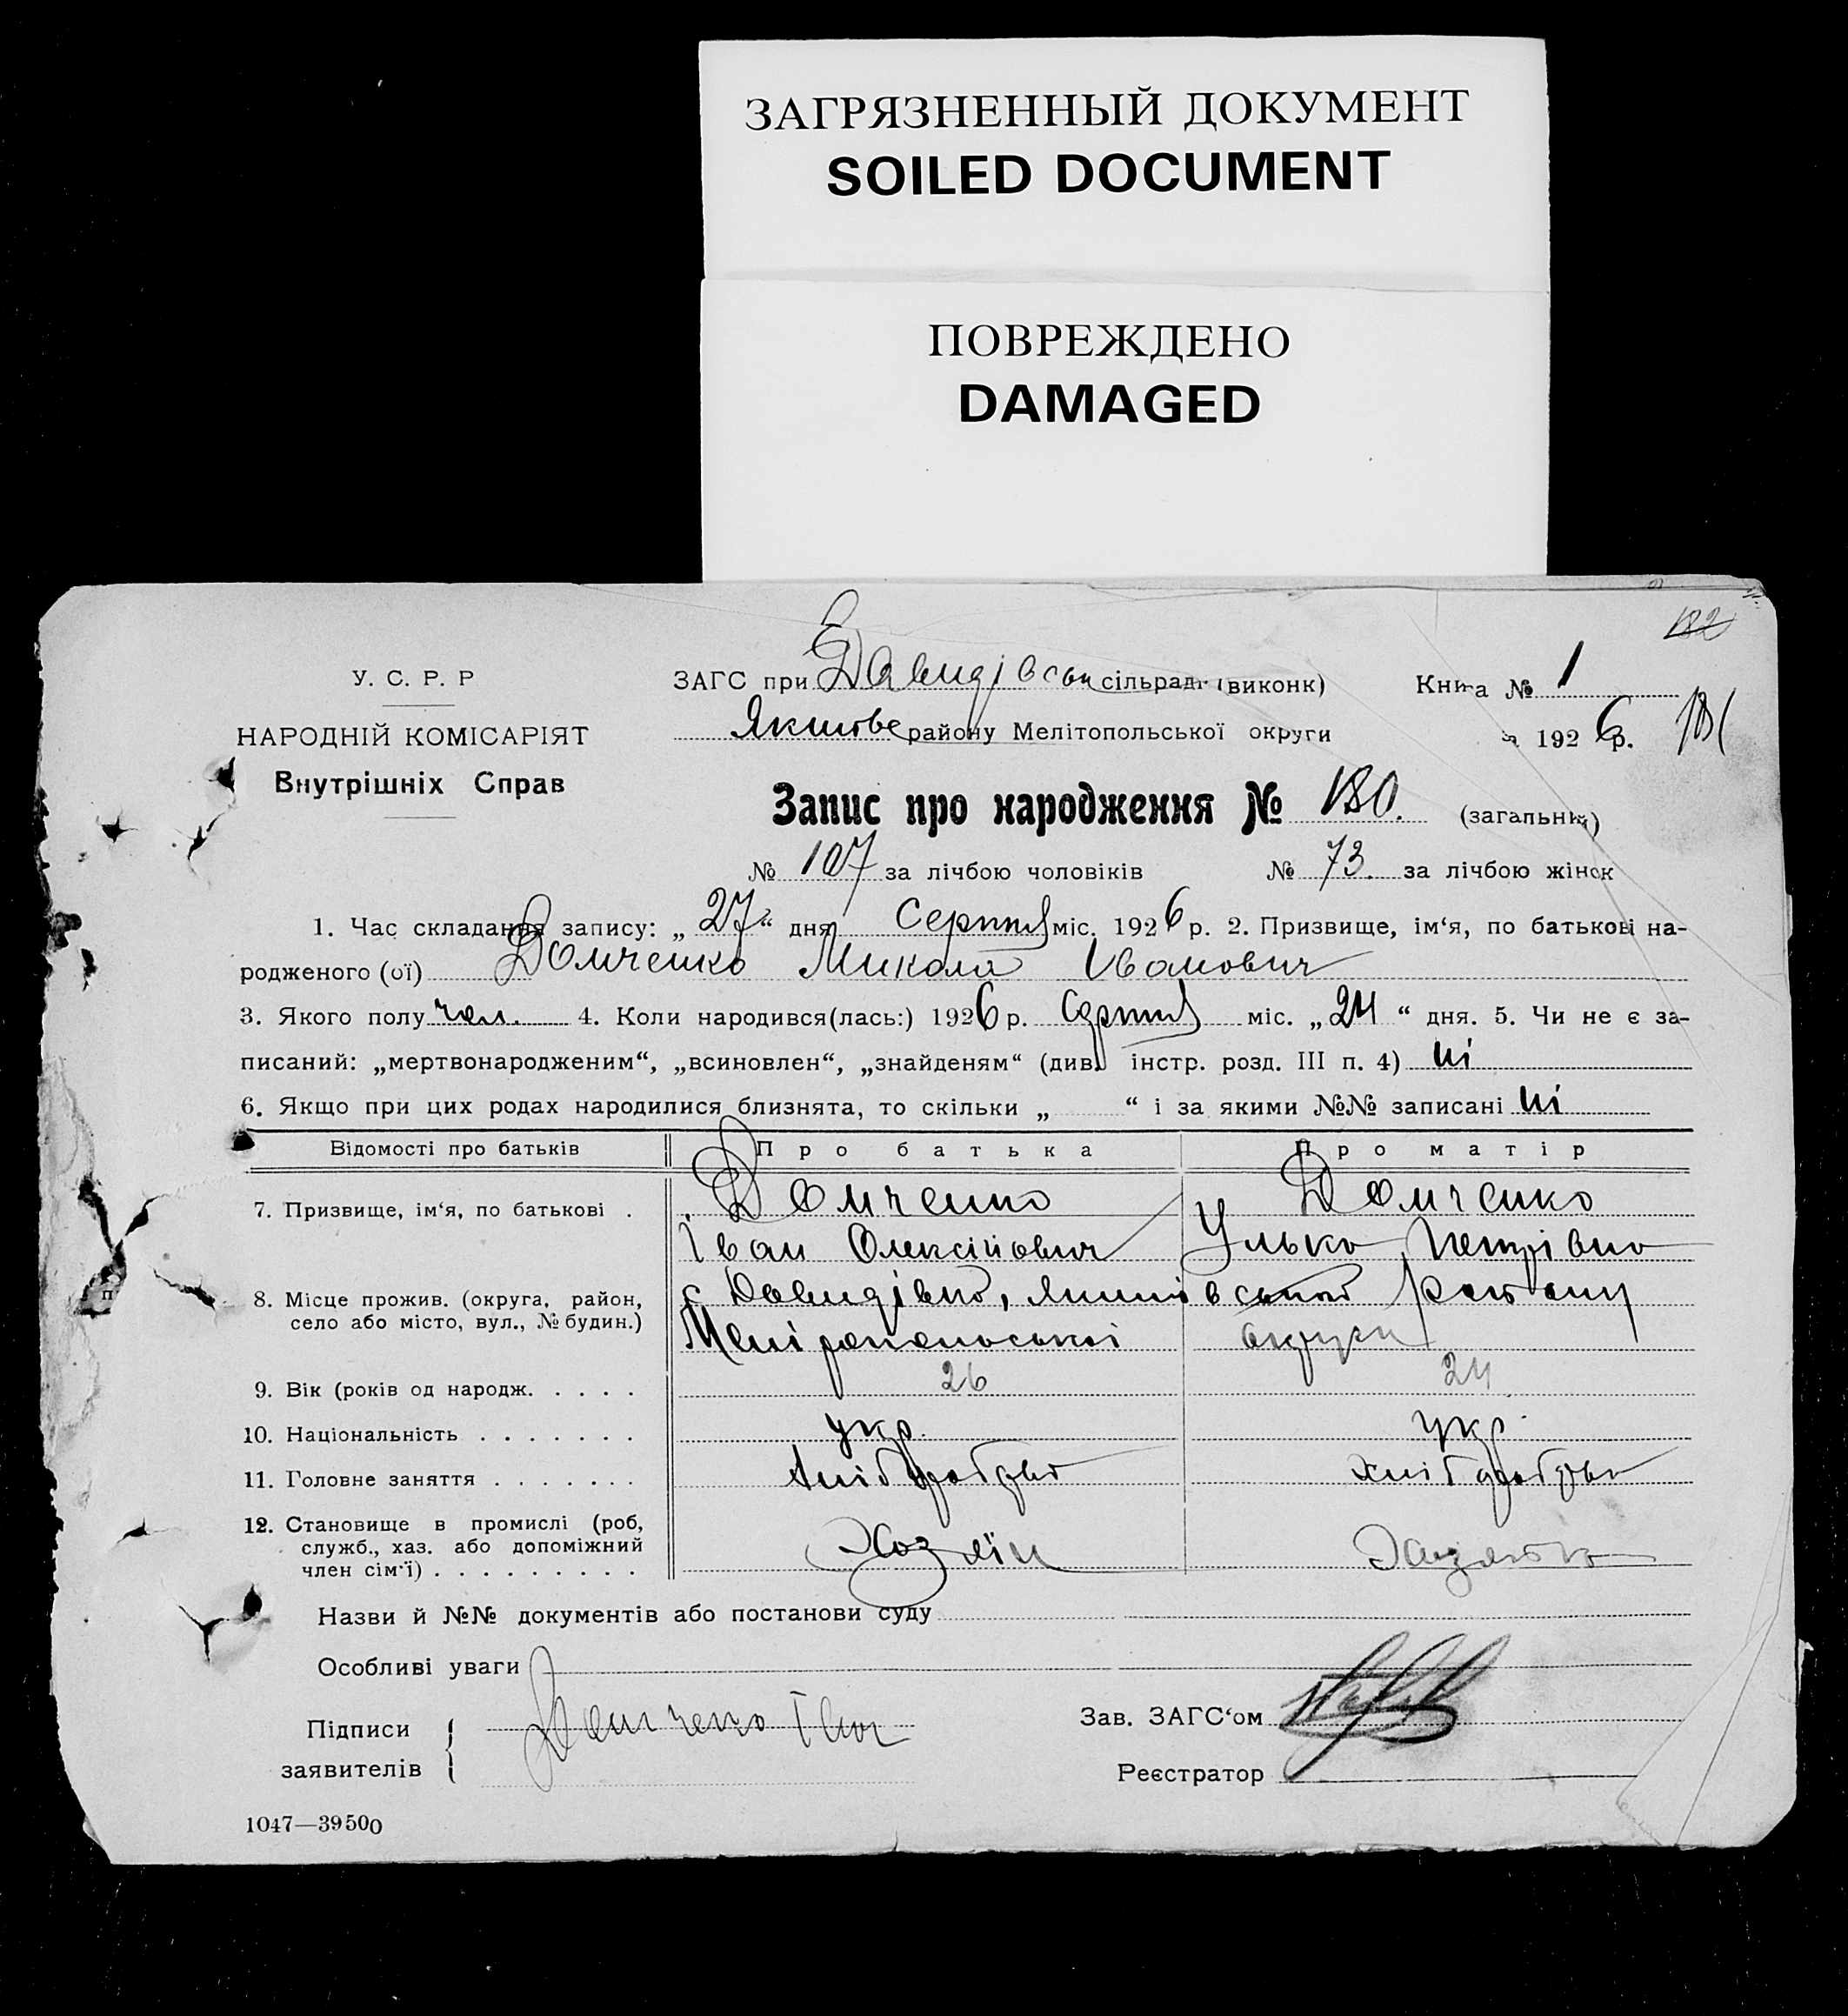 ЗАГРЯЗНЕННЫЙ ДОКУМЕНТ
SOILED DOCUMENT
ПОВРЕЖДЕНО
DAMAGED
182
У. С. Р. Р
ЗАГС при Давидівськ сільрад. (виконк) Книга № 1
НАРОДНІЙ КОМІСАРІЯТ
Якимове району Мелітопольської округи 1926 р. 181
Внутрішніх Справ
Запис про народження № 180. (загальний)
№ 107 за лічбою чоловіків № 73. за лічбою жінок
1. Час складання запису: „27“ дня Серпня міс. 1926 р. 2. Призвище, ім‘я, по батькові на-
родженого (ої) Домченко Микола Іванович
3. Якого полу чол. 4. Коли народився(лась:) 1926 р. Серпня міс. „24“ дня. 5. Чи не є за-
писаний: „мертвонародженим“, „всиновлен“, „знайденям“ (див. інстр. розд. III п. 4) ні
6. Якщо при цих родах народилися близнята, то скільки „ “ і за якими №№ записані ні
Відомості про батьків Про батька Про матір
7. Призвище, ім‘я, по батькові . Домченко Домченко
Іван Олексійович Улька Петрівна
8. Місце прожив. (округа, район, с Давидівка, Якимівського району
село або місто, вул., № будин.) Мелітопольської округи
9. Вік (років од народж. . . . . 26 24
10. Національність . . . . . . . укр. укр.
11. Головне заняття . . . . . . . хліборобство хліборобство
12. Становище в промислі (роб,
служб., хаз. або допоміжний Хозяїн Хазяйка
член сім‘ї) . . . . . . . . .
Назви й №№ документів або постанови суду
Особливі уваги
Підписи Домченко Іван Зав. ЗАГС‘ом
заявителів
Реєстратор
1047—39500